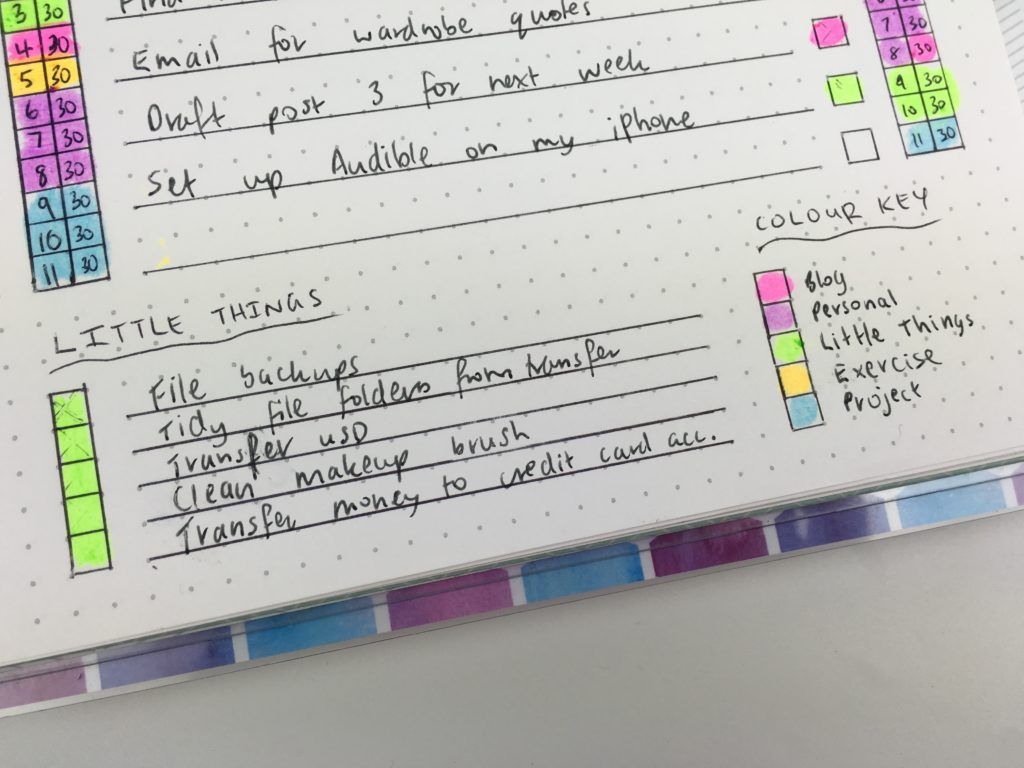 3 30
4 30
5 30
6 30
7 30
8 30
9 30
10 30
11 30
Email for wardrobe quotes
Draft post 3 for next week
Set up Audible on my iphone
7 30
8 30
9 30
10 30
11 30
LITTLE THINGS
File backups
Tidy file folders from transfer
Transfer USD
Clean makeup brush
Transfer money to credit card acc.
COLOUR KEY
Blog
Personal
Little Things
Exercise
Project